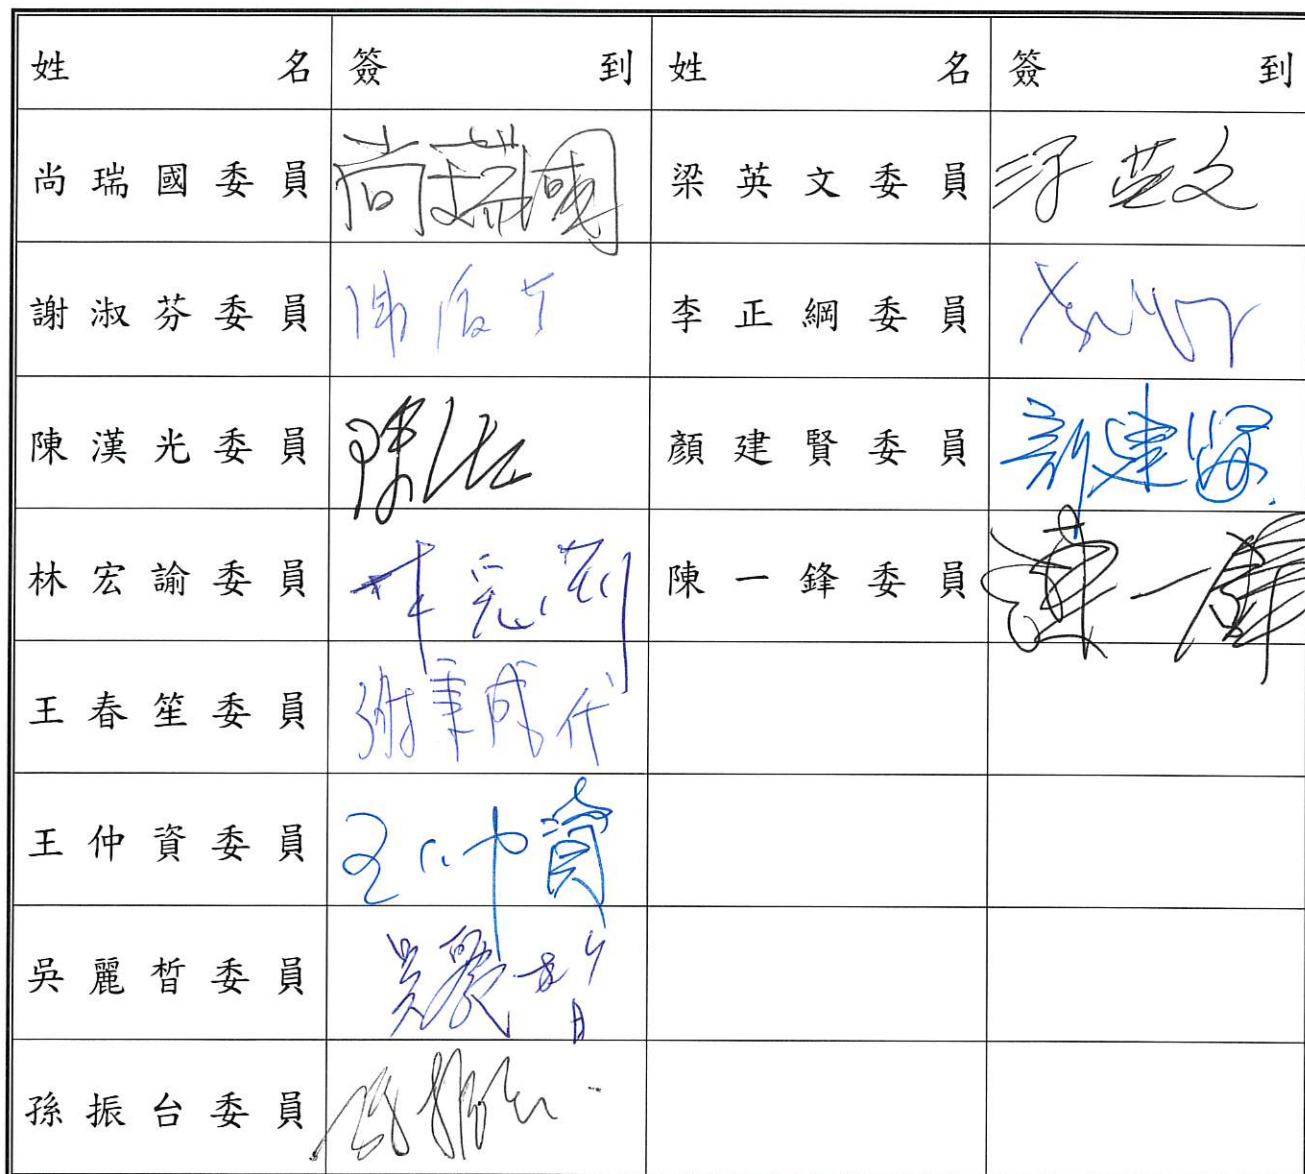 姓名 簽到 姓名 簽到
尚瑞國委員 尚瑞國 梁英文委員 梁英文
謝淑芬委員 李正綱委員
陳漢光委員 陳 顏建賢委員 顏建賢
林宏諭委員 林宏諭 陳一鋒委員 陳一鋒
王春笙委員 謝秉成代
王仲資委員 王仲資
吳麗皙委員 吳麗皙
孫振台委員 孫振台